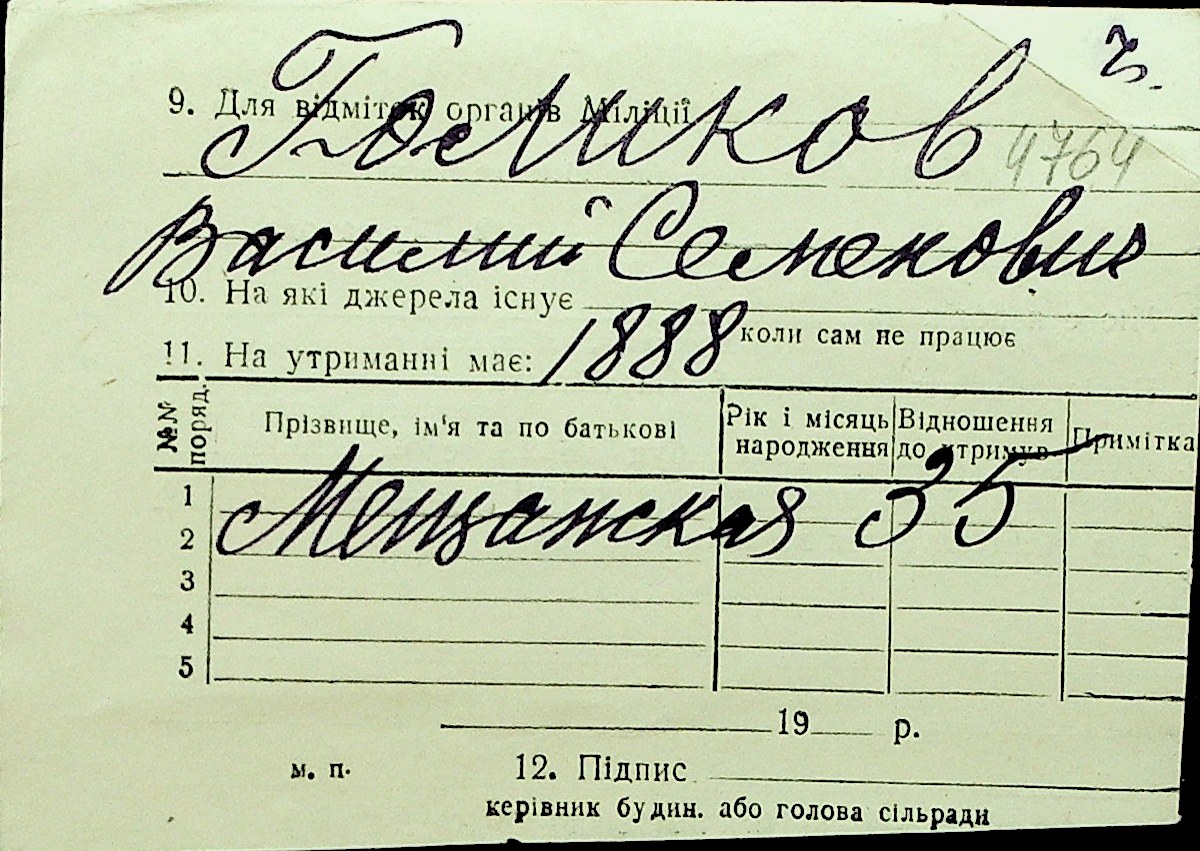 9. Для відміток органів Міліції
Голиков
4764
Василий Семенович
10. На які джерела існує
коли сам не працює
11. На утриманні має: 1888
№№ поряд.
Прізвище, ім'я та по батькові
Рік і місяць народження
Відношення до утримув.
Примітка
1
Мещанская 35
2
3
4
5
19 р.
м. п.
12. Підпис
керівник будин. або голова сільради